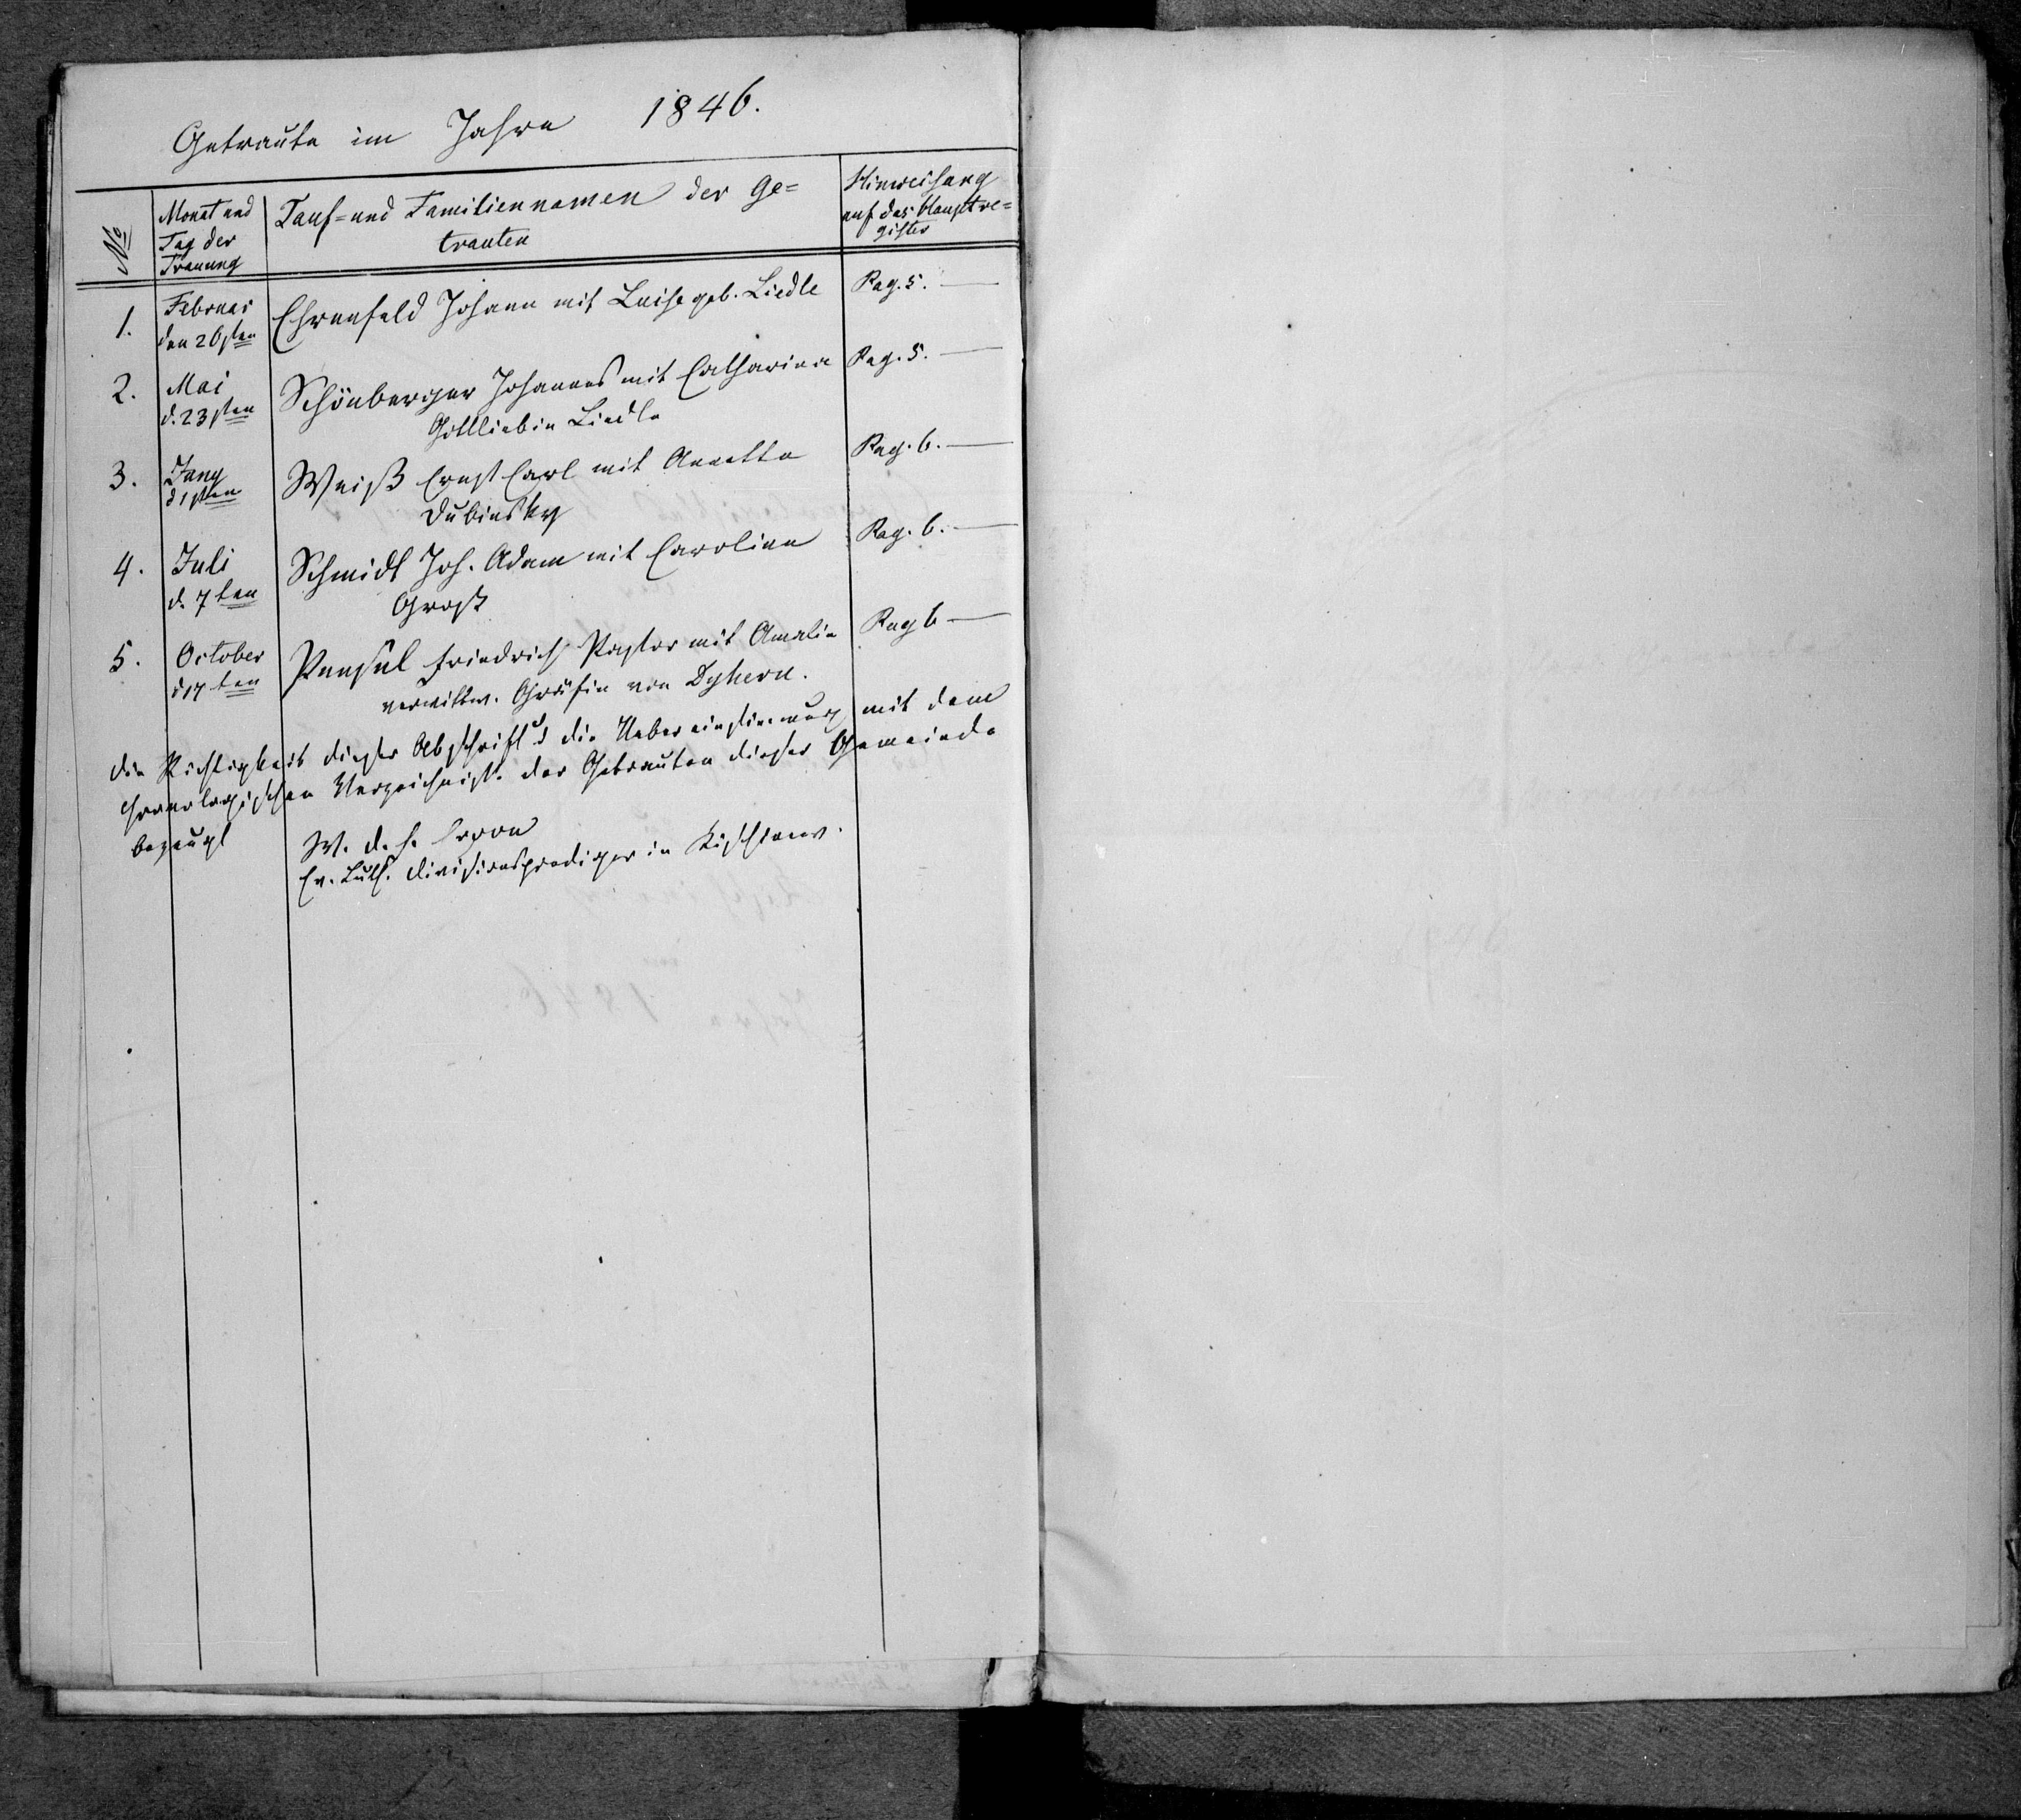 Getraute im Jahre 1846.
No
Monat und
Tag der
Trauung
Tauf= und Familiennamen der Ge=
trauten
Hinweisung
auf das Hauptre=
gister
1.
Februar
den 26sten
Ehrenfeld Johann mit Luise geb. Liedle
Pag. 5.
2.
Mai
d. 23sten
Schönberger Johannes mit Catharina
Gottliebin Liedle
Pag. 5.
3.
Juny
d 1sten
Weiß Ernst Carl mit Annette
Dubinsky
Pag. 6.
4.
Juli
d. 7ten
Schmidt Joh. Adam mit Carolina
Groß
Pag. 6.
5.
October
d 17ten
Friedrich Pastor mit Amalie
verwittw. Gräfin von Dyhern.
Pag 6
Die Richtigkeit dieser Abschrift u die Uebereinstimung mit dem
chronologischen Verzeichniße der Getrauten dieser Gemeinde
bezeugt
Ev. Luth. Divisionsprediger in Kischinew.